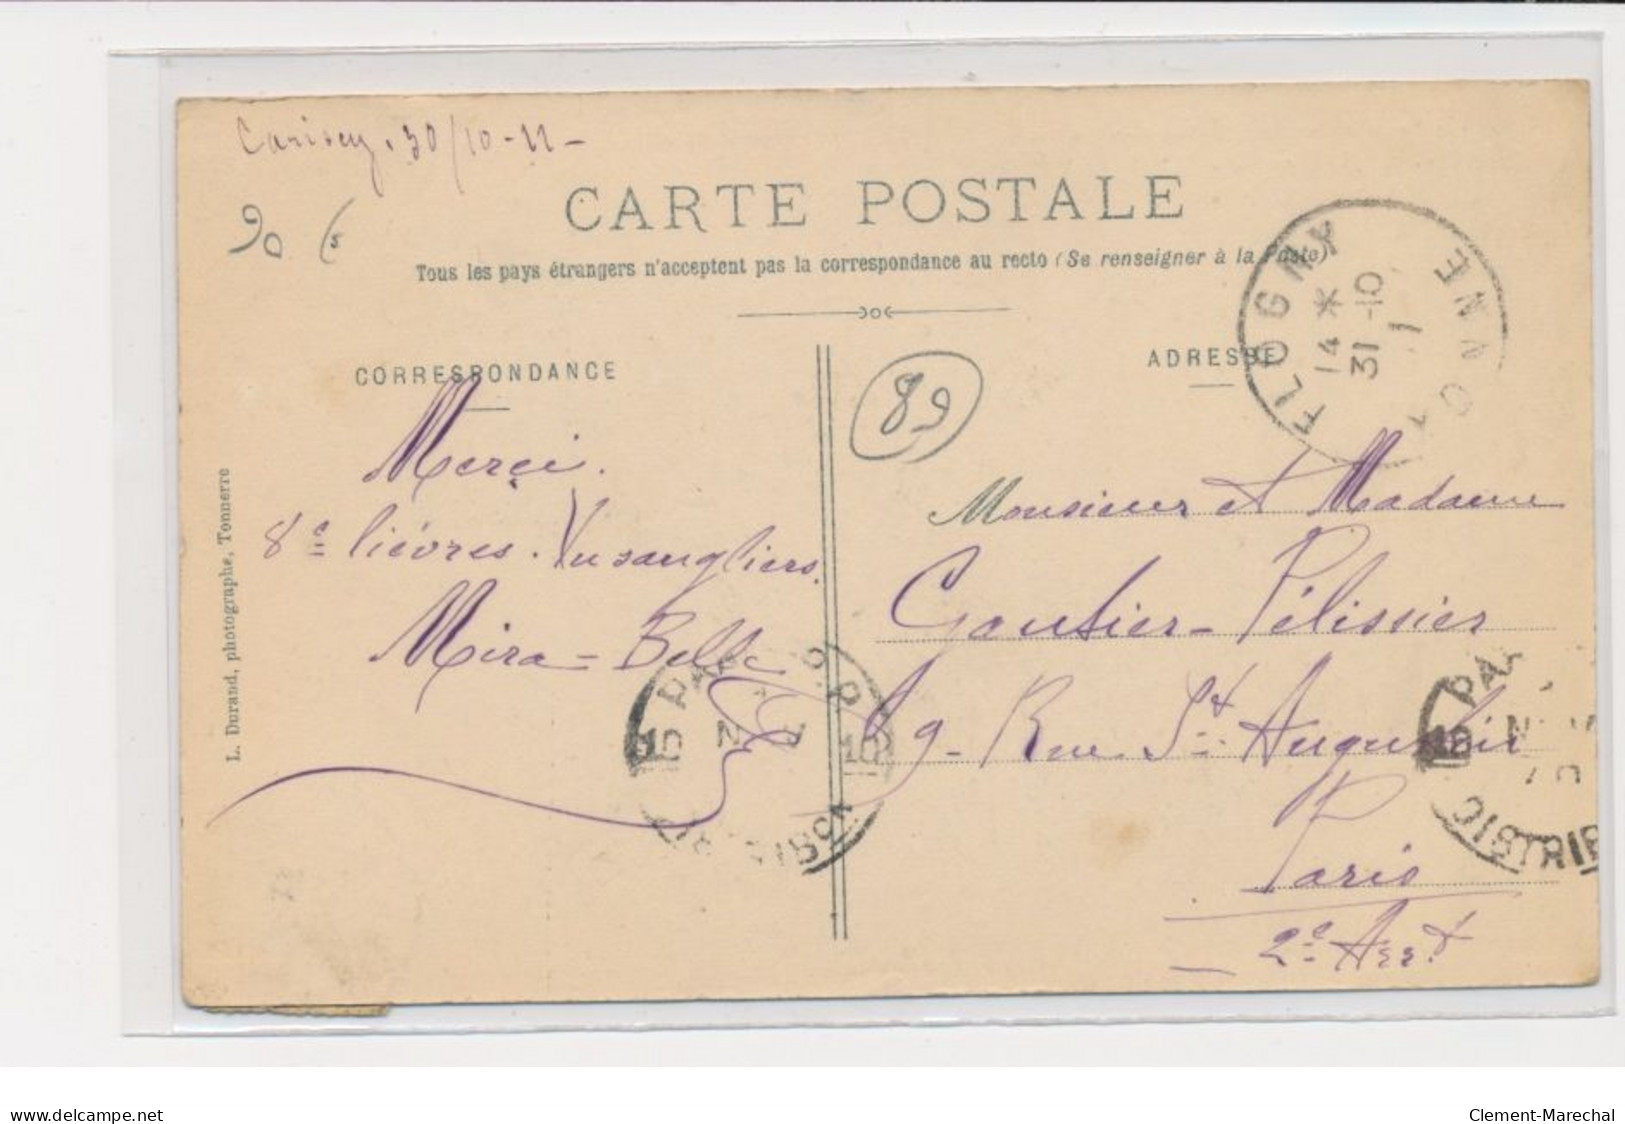 Carisey. 30/10-11-
90 (5
CARTE POSTALE
Tous les pays étrangers n'acceptent pas la correspondance au recto (Se renseigner à la Poste)
CORRESPONDANCE
ADRESSE
89
FLOGNY
14 *
31 -10
YONNE
Merci.
8e lièvres. Vu sangliers.
Mira-Belle
Monsieur et Madame
Gautier-Pélissier
9- Rue St Augustin
Paris
2e Arrt
L. Durand, photographe, Tonnerre
DISTRIB
delcampe.net
Clement-Marechal